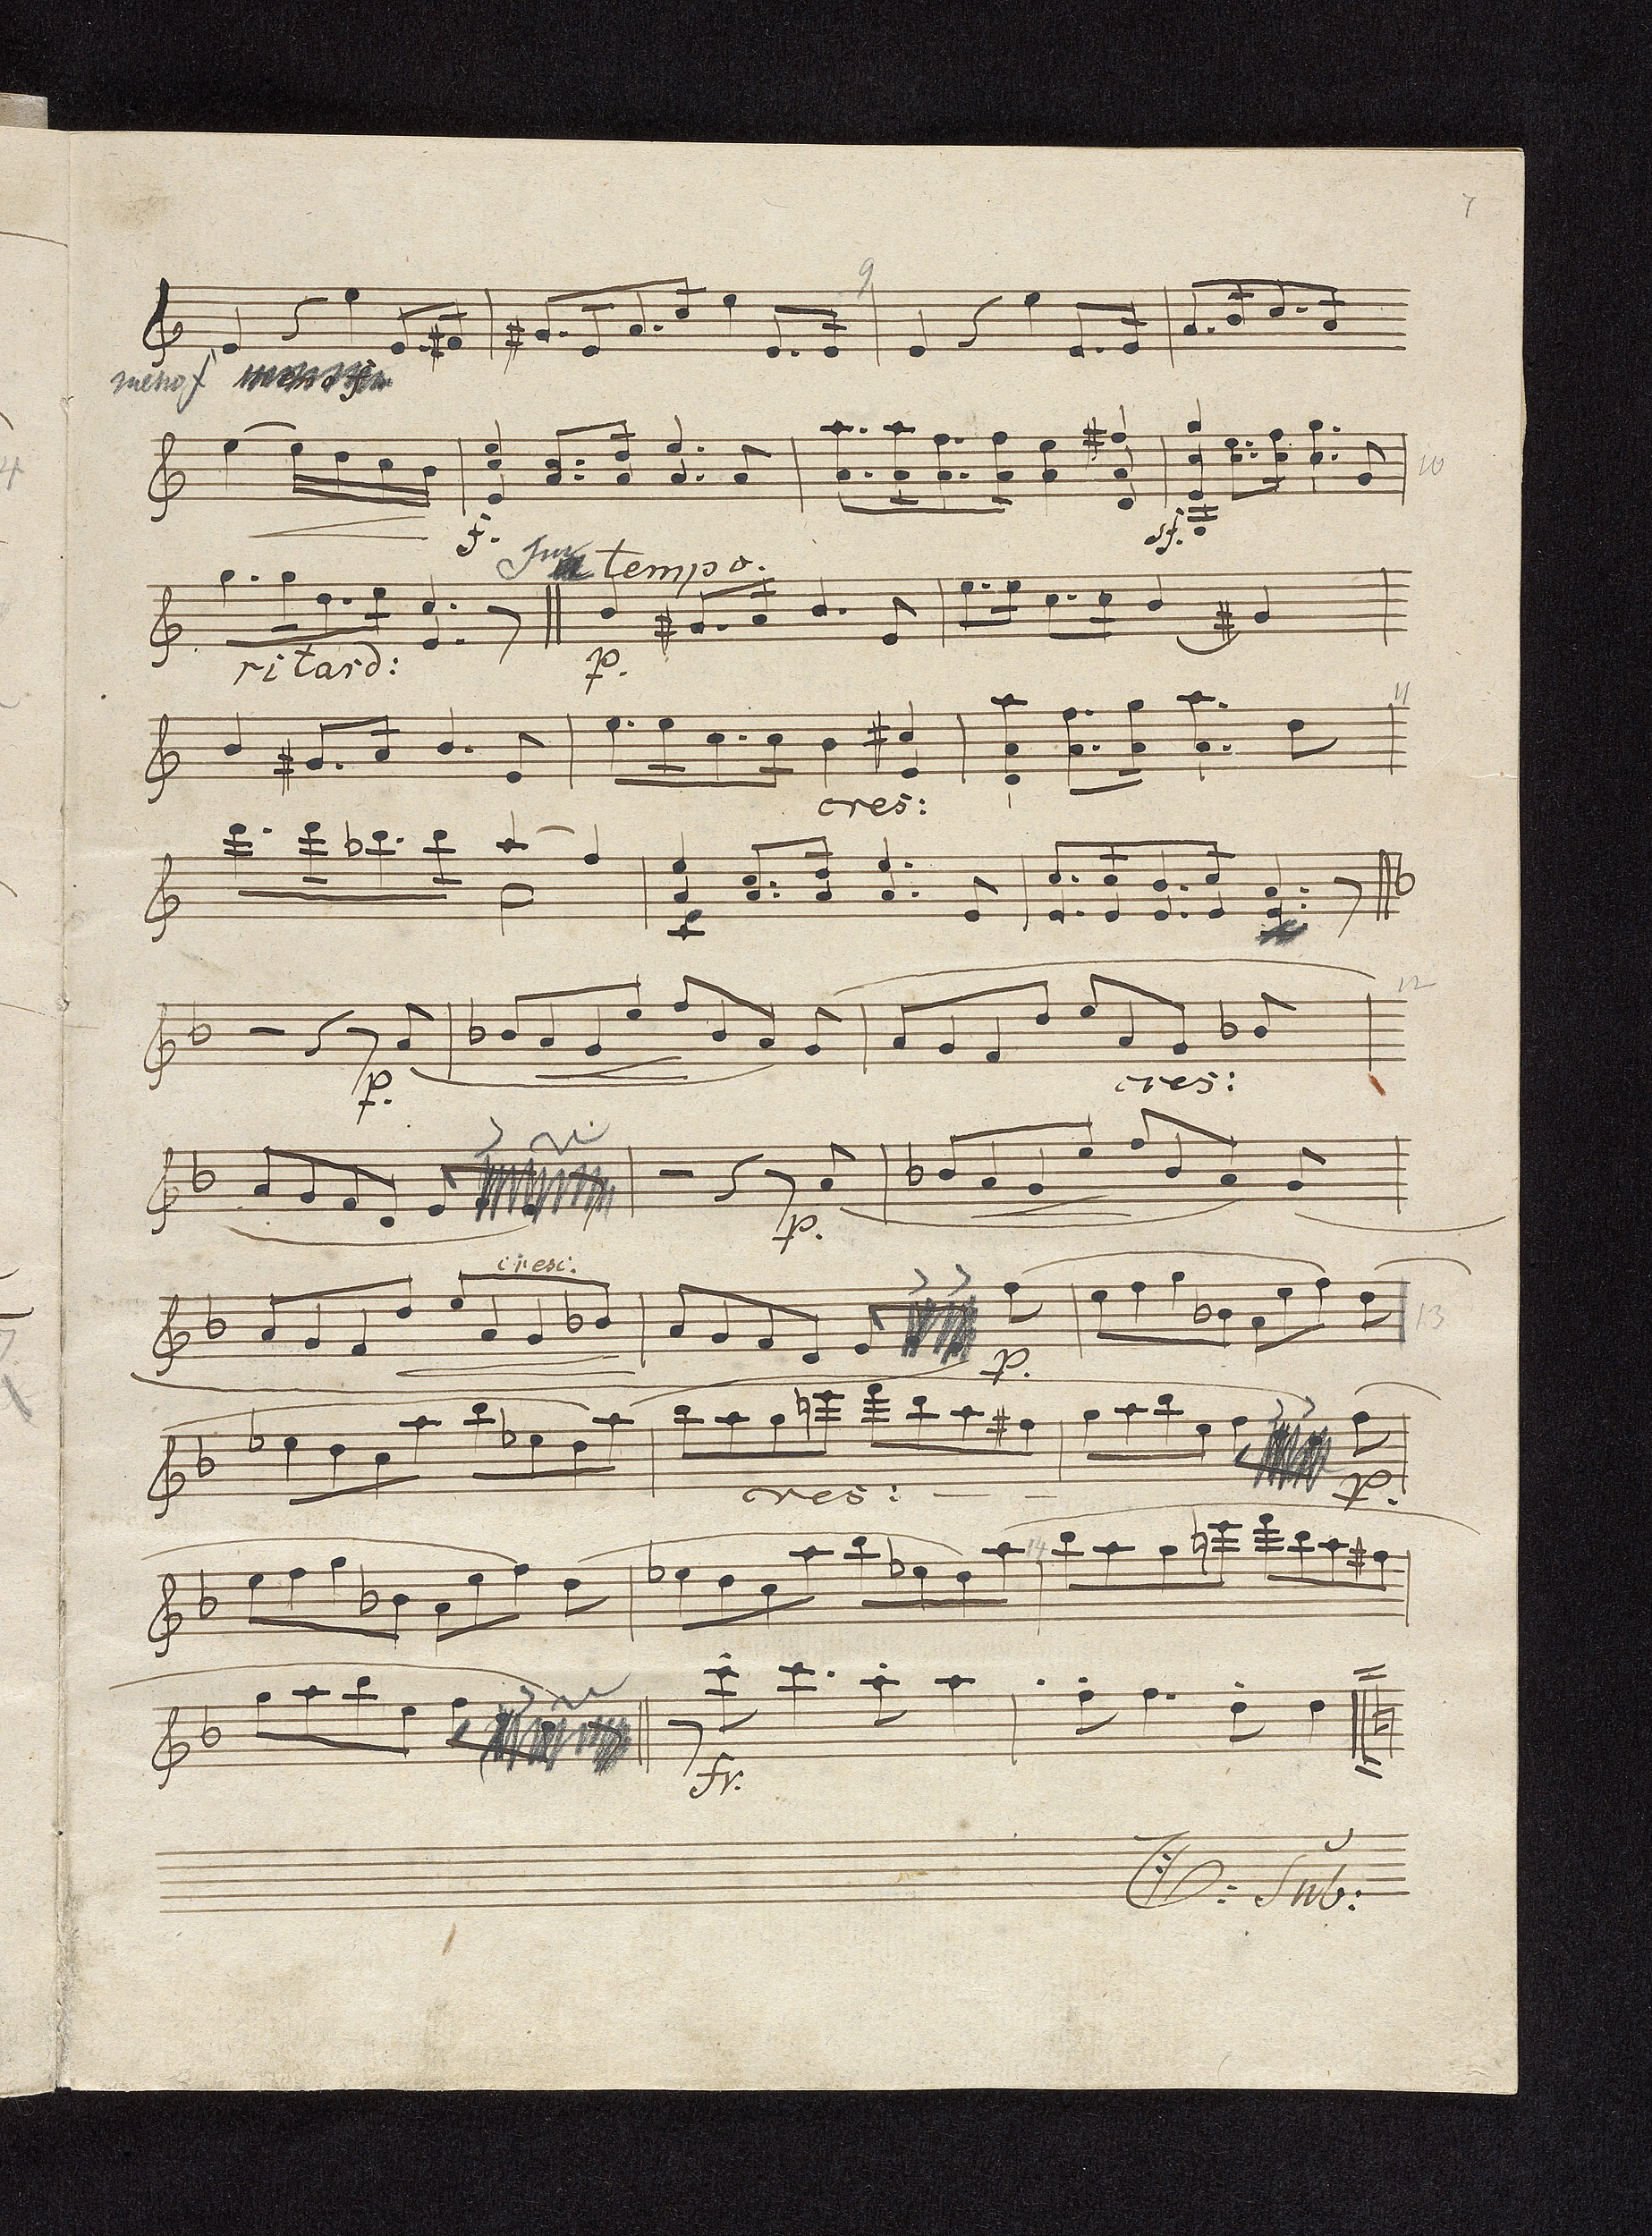 7
9
meno f
f.
sf.
10
tempo.
ritard:
p.
11
cres:
12
p.
cres:
p.
cresc.
p.
13
cres:
p.
14
fr.
V: Sub: